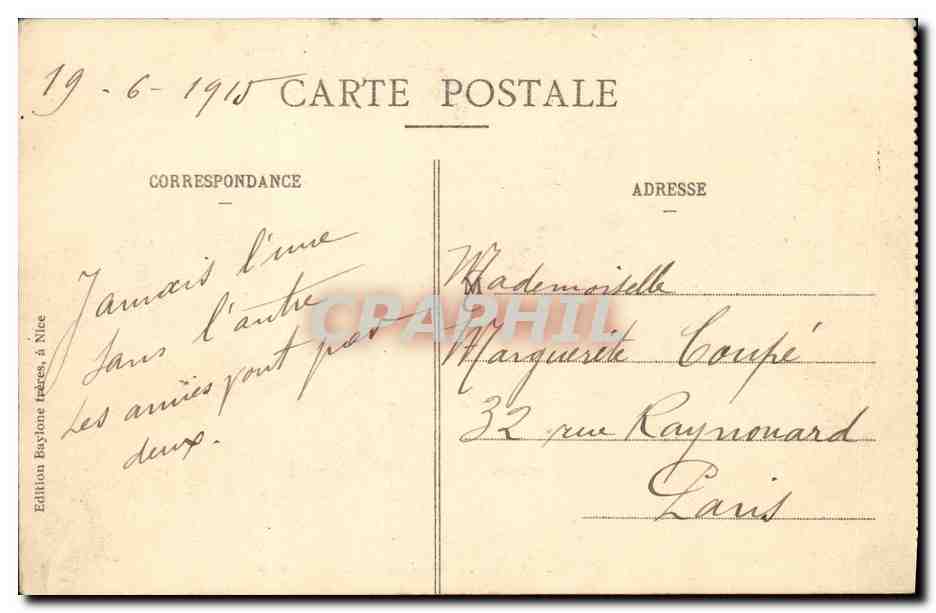 19 - 6 - 1915
CARTE POSTALE
CORRESPONDANCE
Jamais l'une
sans l'autre
Les amies vont par
deux.
ADRESSE
Mademoiselle
Marguerite Coupé
32 rue Raynouard
Paris
Edition Baylone frères, à Nice
CPAPHIL